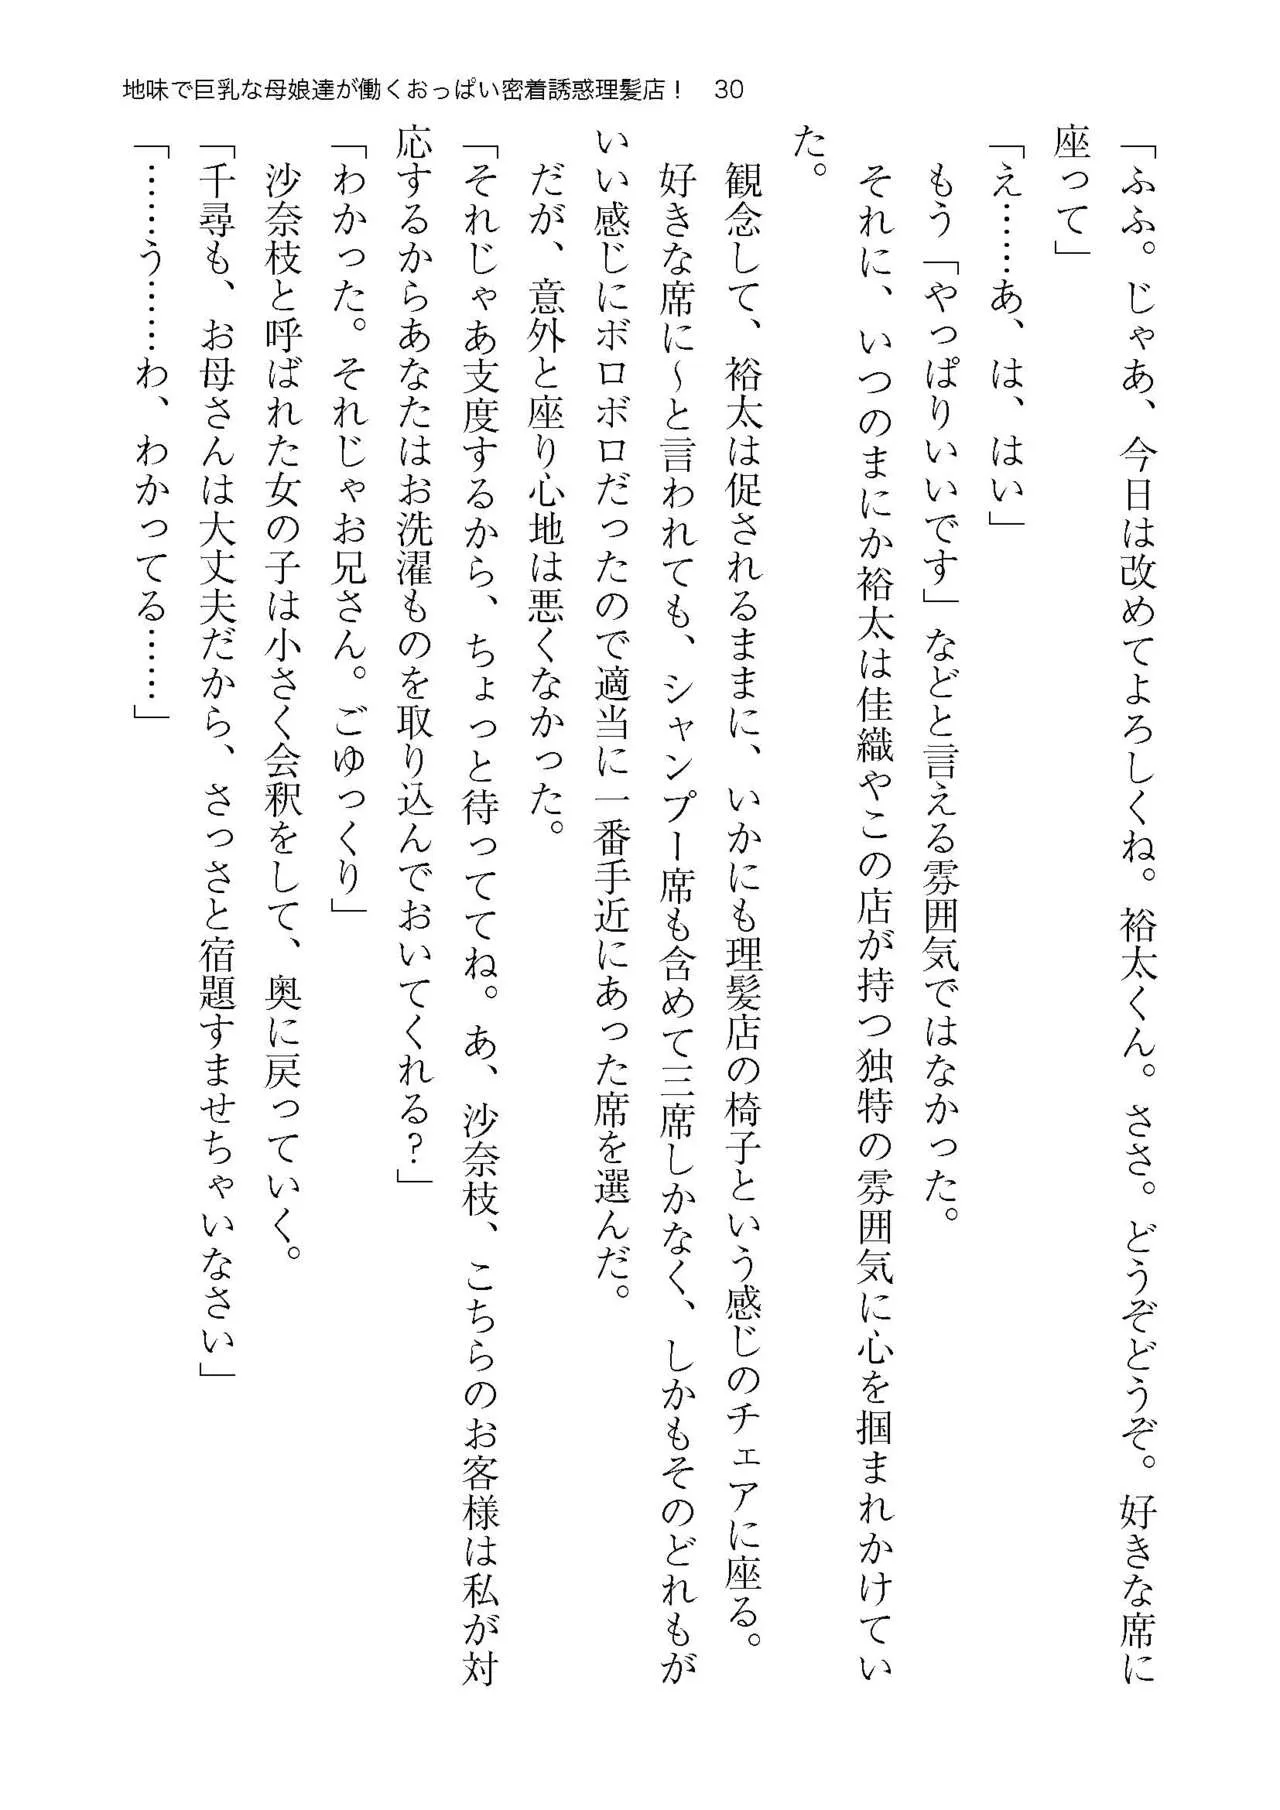 地味で巨乳な母娘達が働くおっぱい密着誘惑理髪店！　30
「ふふ。じゃあ、今日は改めてよろしくね。裕太くん。ささ。どうぞどうぞ。好きな席に
座って」
「え……あ、は、はい」
　もう「やっぱりいいです」などと言える雰囲気ではなかった。
　それに、いつのまにか裕太は佳織やこの店が持つ独特の雰囲気に心を掴まれかけてい
た。
　観念して、裕太は促されるままに、いかにも理髪店の椅子という感じのチェアに座る。
　好きな席に～と言われても、シャンプー席も含めて三席しかなく、しかもそのどれもが
いい感じにボロボロだったので適当に一番手近にあった席を選んだ。
　だが、意外と座り心地は悪くなかった。
「それじゃあ支度するから、ちょっと待っててね。あ、沙奈枝、こちらのお客様は私が対
応するからあなたはお洗濯ものを取り込んでおいてくれる？」
「わかった。それじゃお兄さん。ごゆっくり」
　沙奈枝と呼ばれた女の子は小さく会釈をして、奥に戻っていく。
「千尋も、お母さんは大丈夫だから、さっさと宿題すませちゃいなさい」
「……う……わ、わかってる……」